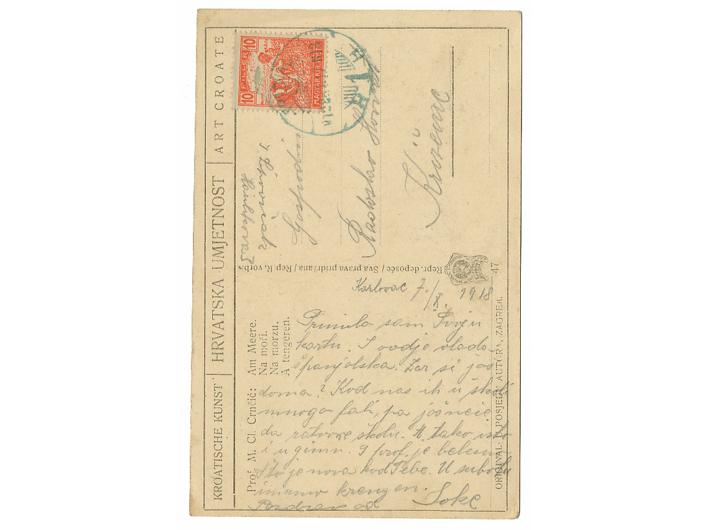 KROATISCHE KUNST | HRVATSKA UMJETNOST | ART CROATE
Prof. M. Cl. Crnčić: Am Meere.
Na moři.
Na morzu.
A tengeren.
Repr. deposée / Sva prava pridržana / Rep. R. vorb.
47
ORIGINAL U POSJEDU AUTORA, ZAGREB.
10 10
MAGYAR
Gospodin
Rastoslav
Križevac
Karlovac 7./X. 1918
Primila sam Tvoju
kartu. I ovdje vlada
španjolska. Zar si još
doma? Kod nas ih u školi
mnogo fali, pa još neće
da zatvore školu. A tako isto
i u gimn. I prof. je
što je nova kod Tebe. U subotu
imamo
Pozdrav od